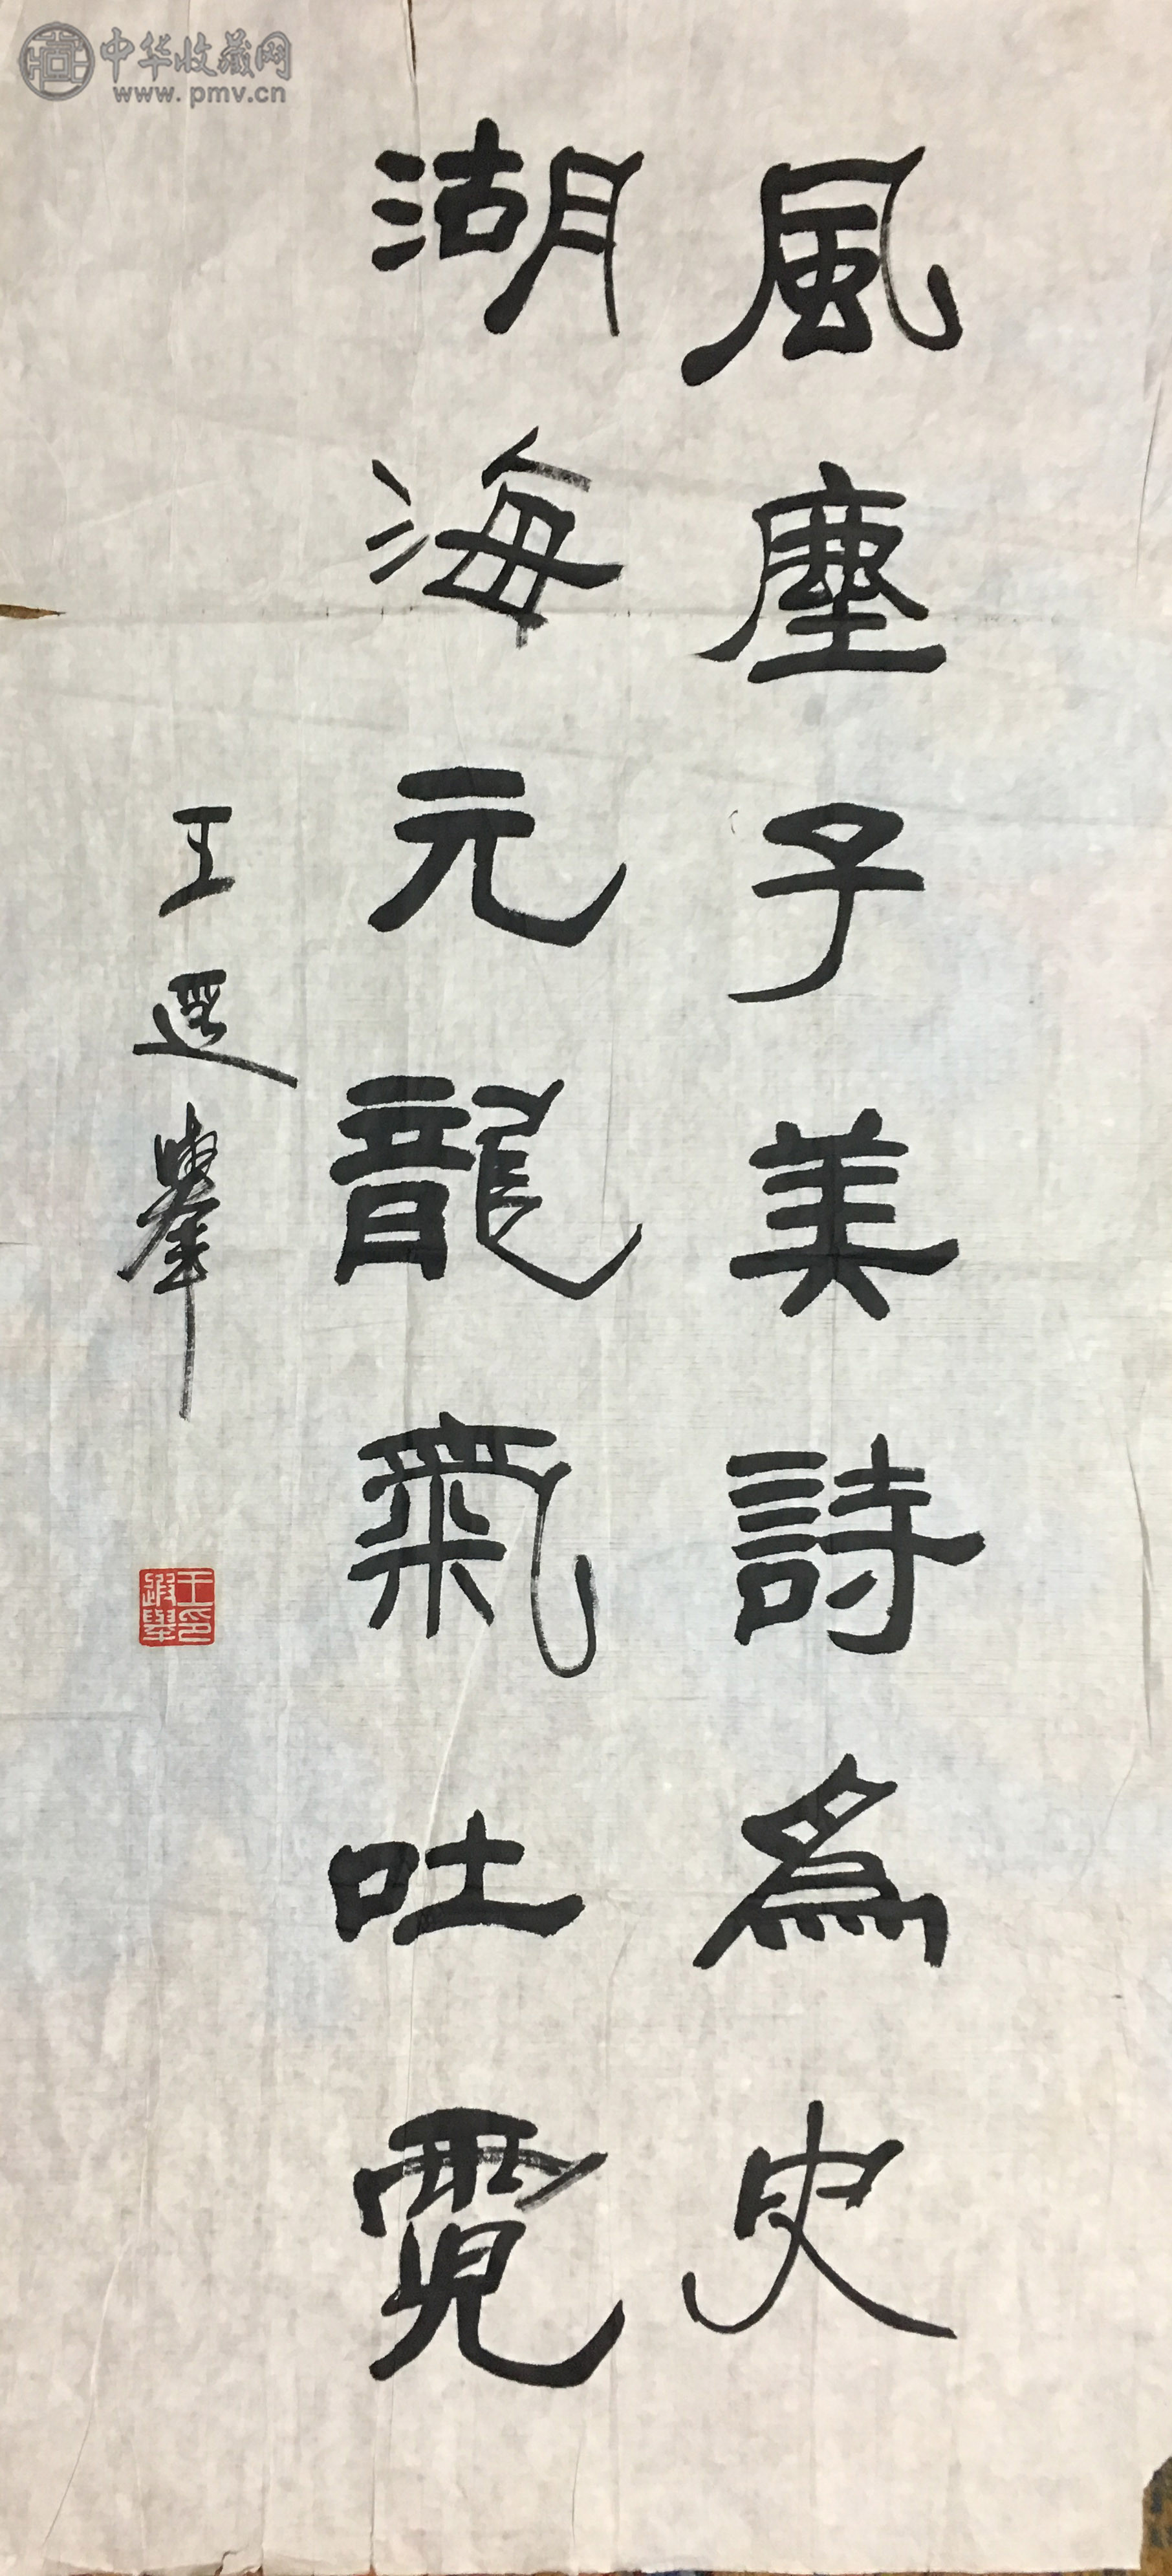 風塵子美詩為史
湖海元龍氣吐霓
王遐舉
王印遐舉
中华收藏网
www.pmv.cn